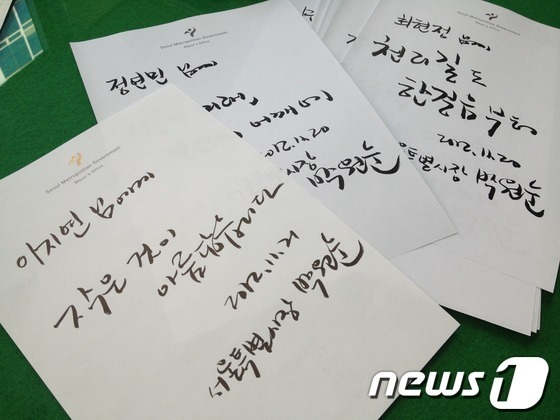 Seoul Metropolitan Government
Mayor's Office
이지연 님에게
작은 것이
아름답습니다
2012. 11. 21
서울특별시장 박원순
Seoul Metropolitan Government
Mayor's Office
정변민 님에게
미래는
어깨에
2012. 11. 20
시장 박원순
최현정 님께
천리길도
한걸음부터
2012. 11. 20
울특별시장 박원순
news1